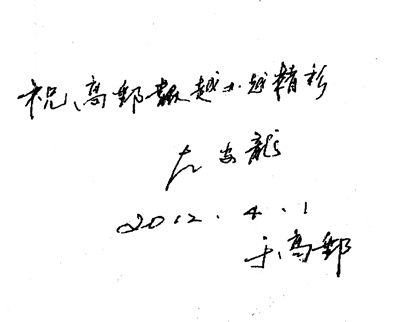 祝高邮报越办越精彩
左安龙
2012.4.1
于高邮